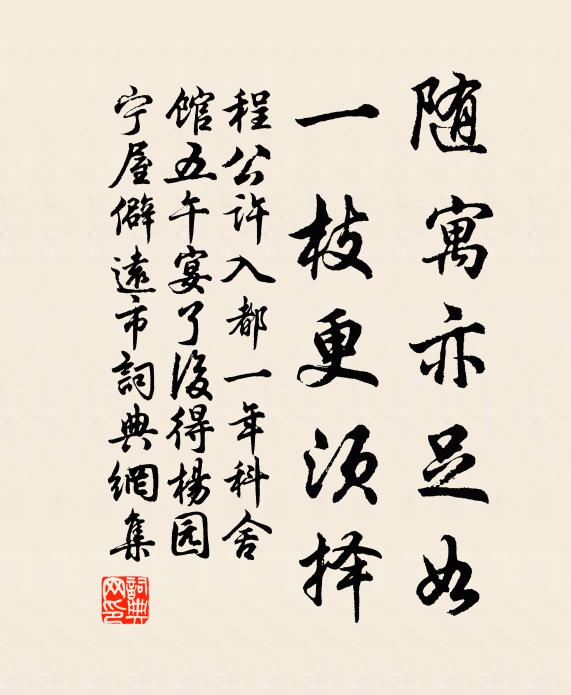 随寓亦足如
一枝更须择
程公许入都一年科舍
馆五午宴了後得楊园
宁屋僻遠市詞典網集
詞典网印